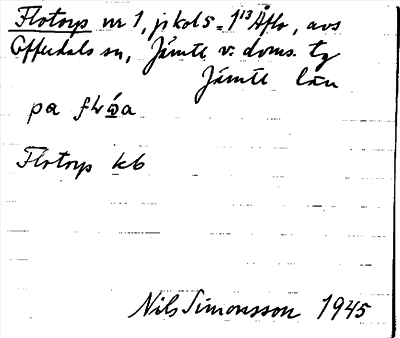 Flotorp nr 1, jskols = 1¹³ Åflo, avs
Offerdals sn, Jämtl v. doms. tg
Jämtl län
på
Flotorp kb
Nils Simonsson 1945